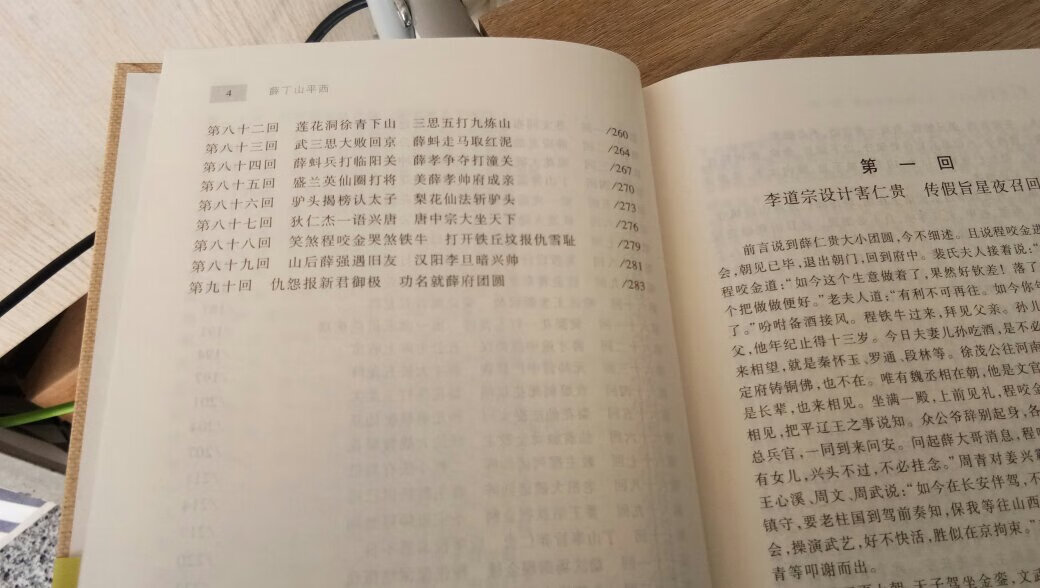 4 薛丁山平西
第八十二回 莲花洞徐青下山 三思五打九炼山 /260
第八十三回 武三思大败回京 薛蚪走马取红泥 /264
第八十四回 薛蚪兵打临阳关 薛孝争夺打潼关 /267
第八十五回 盛兰英仙圈打将 美薛孝帅府成亲 /270
第八十六回 驴头揭榜认太子 梨花仙法斩驴头 /273
第八十七回 狄仁杰一语兴唐 唐中宗大坐天下 /276
第八十八回 笑煞程咬金哭煞铁牛 打开铁丘坟报仇雪耻 /279
第八十九回 山后薛强遇旧友 汉阳李旦暗兴帅 /281
第九十回 仇怨报新君御极 功名就薛府团圆 /283
第一回
李道宗设计害仁贵 传假旨星夜召回
前言说到薛仁贵大小团圆,今不细述。且说程咬金进
会,朝见已毕,退出朝门,回到府中。裴氏夫人接着说:“
程咬金道:“如今这个生意做着了,果然好钦差!落了
个把做做便好。”老夫人道:“有利不可再往。如今你年
了。”吩咐备酒接风。程铁牛过来,拜见父亲。孙儿
父,他年纪止得十三岁。今日夫妻儿孙吃酒,是不必
来相望,就是秦怀玉、罗通、段林等。徐茂公往河南
定府铸铜佛,也不在。唯有魏丞相在朝,他是文官
是长辈,也来相见。坐满一殿,上前见礼,程咬金
相见,把平辽王之事说知。众公爷辞别起身,各
总兵官,一同到来问安。问起薛大哥消息,程咬
有女儿,兴头不过,不必挂念。”周青对姜兴霸
王心溪、周文、周武说:“如今在长安伴驾,不
镇守,要老柱国到驾前奏知,保我等往山西
会,操演武艺,好不快活,胜似在京拘束。”
青等叩谢而出。
朝,天子驾坐金銮,文武